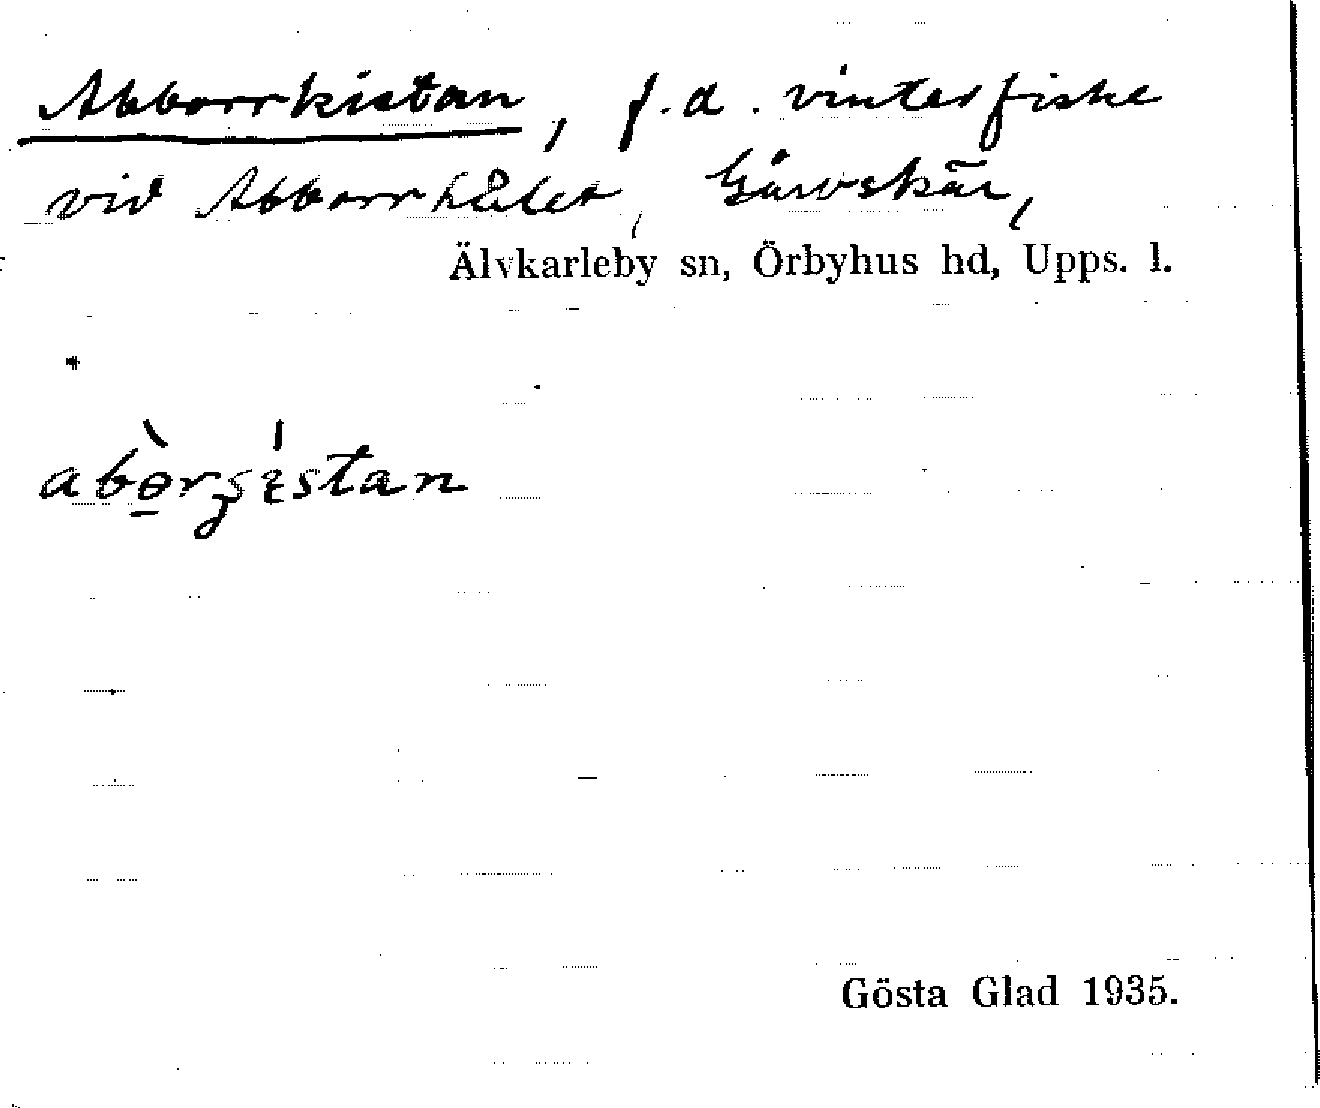 Abborrkistan, f.d. vinterfiske
vid Abborrhålet, Gårdskär,
Älvkarleby sn, Örbyhus hd, Upps. l.
Gösta Glad 1935.